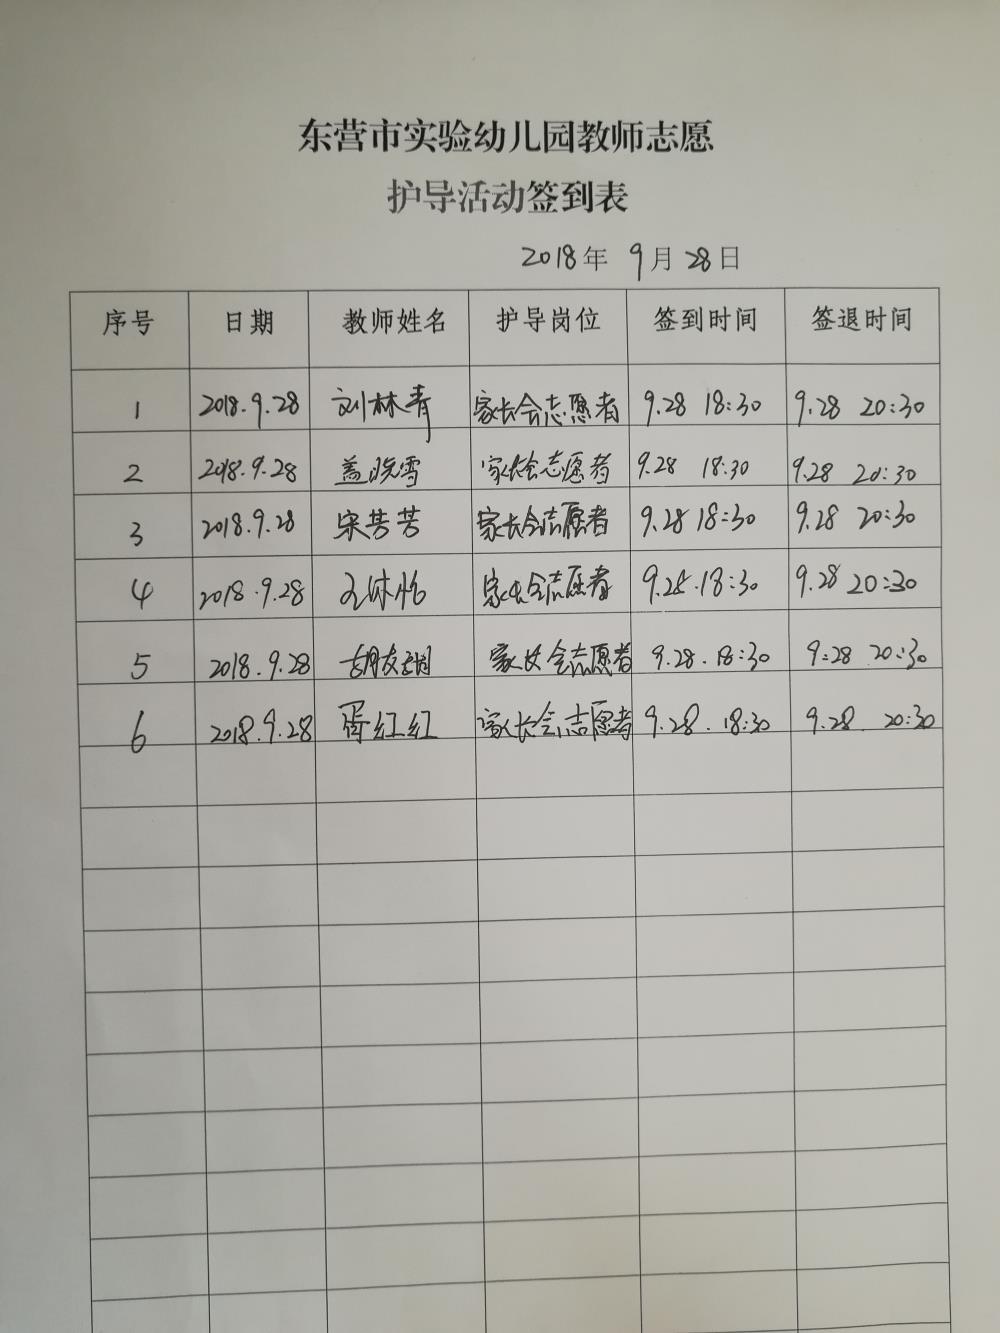 东营市实验幼儿园教师志愿
护导活动签到表
2018年 9月28日
序号 日期 教师姓名 护导岗位 签到时间 签退时间
1 2018.9.28 刘林青 家长会志愿者 9.28 18:30 9.28 20:30
2 2018.9.28 盖晓雪 家长会志愿者 9.28 18:30 9.28 20:30
3 2018.9.28 宋芳芳 家长会志愿者 9.28 18:30 9.28 20:30
4 2018.9.28 家长会志愿者 9.28.18:30 9.28 20:30
5 2018.9.28 家长会志愿者 9.28.18:30 9.28 20:30
6 2018.9.28 胥红红 家长会志愿者 9.28.18:30 9.28. 20:30